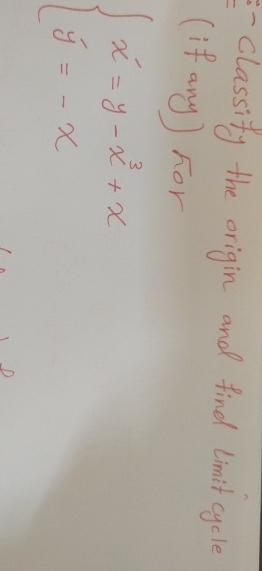 :- Classify the origin and find limit cycle
(if any) For
{ x' = y - x³ + x
{ y' = - x